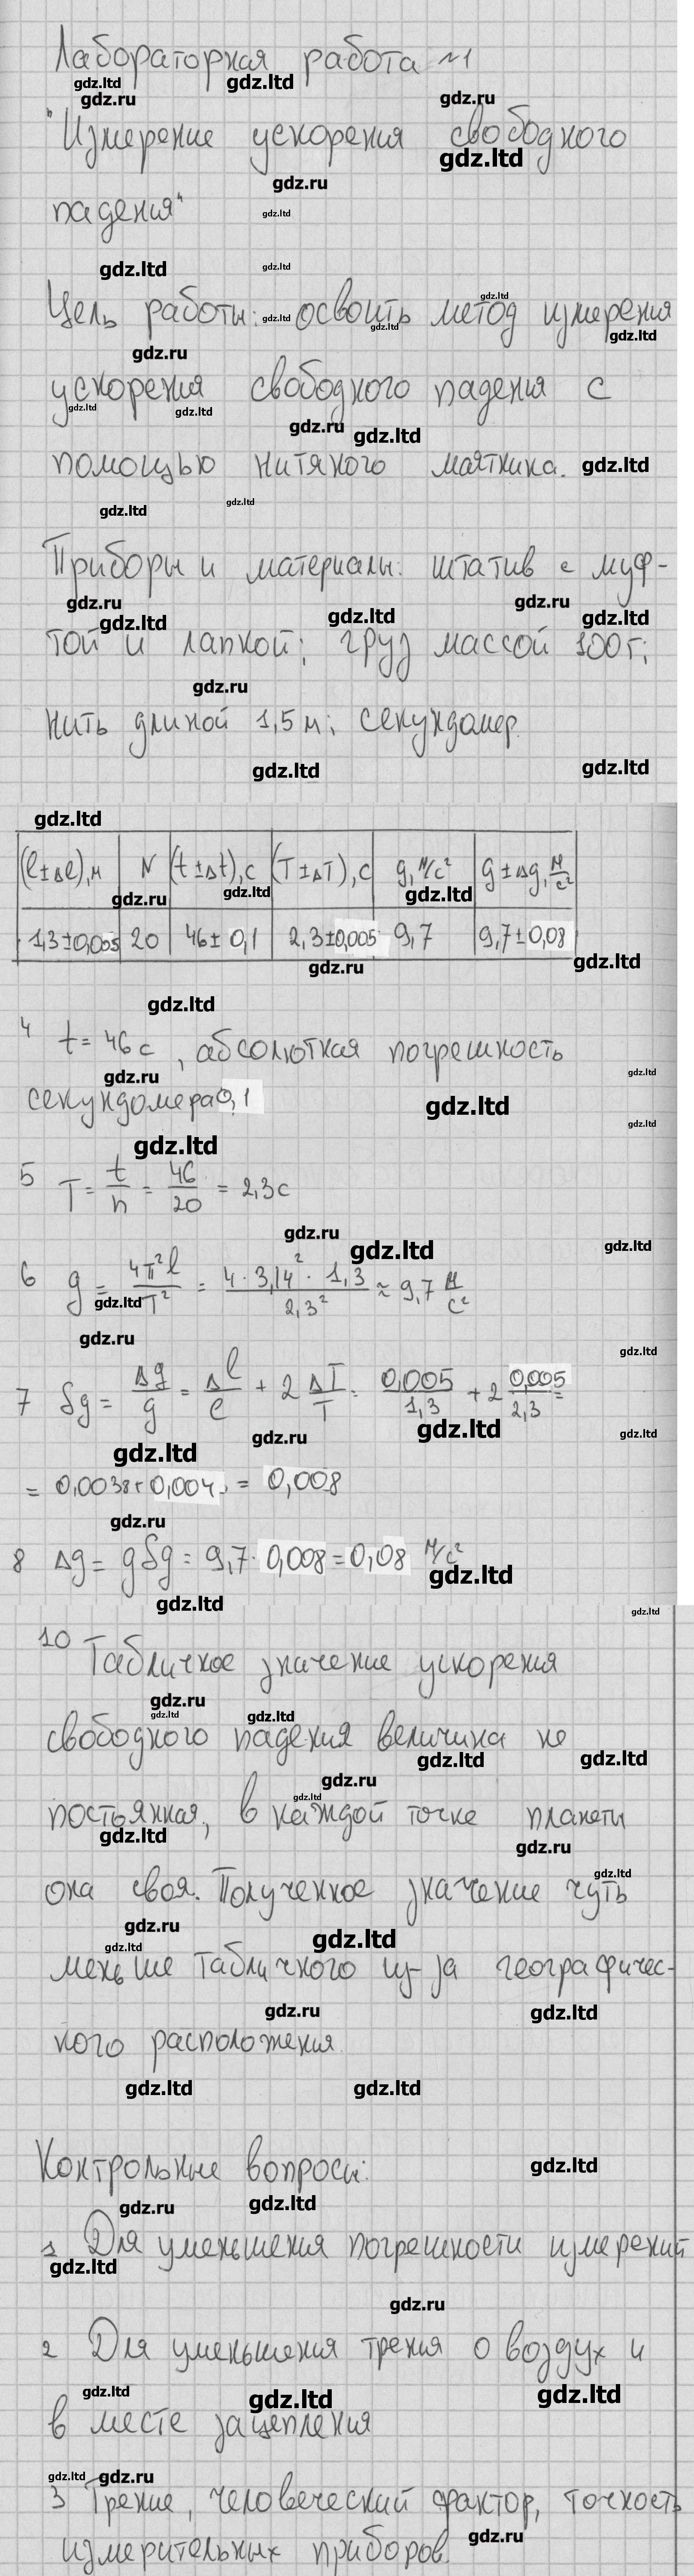 Лабораторная работа №1
"Измерение ускорения свободного
падения"
Цель работы: освоить метод измерения
ускорения свободного падения с
помощью нитяного маятника.
Приборы и материалы: штатив с муф-
той и лапкой; груз массой 100г;
нить длиной 1,5 м; секундомер.
(l±Δl),м N (t±Δt),с (T±ΔT),с g, м/с² g±Δg, м/с²
1,3±0,005 20 46±0,1 2,3±0,005 9,7 9,7±0,08
4 t=46с, абсолютная погрешность
секундомера 0,1
5 T = t/n = 46/20 = 2,3с
6 g = 4π²l/T² = 4·3,14²·1,3/2,3² ≈ 9,7 м/с²
7 δg = Δg/g = Δl/l + 2 ΔT/T = 0,005/1,3 + 2 0,005/2,3 =
= 0,0038+0,004 = 0,008
8 Δg = gδg = 9,7·0,008=0,08 м/с²
10 Табличное значение ускорения
свободного падения величина не
постоянная, в каждой точке планеты
она своя. Полученное значение чуть
меньше табличного из-за географичес-
кого расположения
Контрольные вопросы:
1 Для уменьшения погрешности измерений
2 Для уменьшения трения о воздух и
в месте зацепления
3 Трение, человеческий фактор, точность
измерительных приборов.
gdz.ltd
gdz.ru